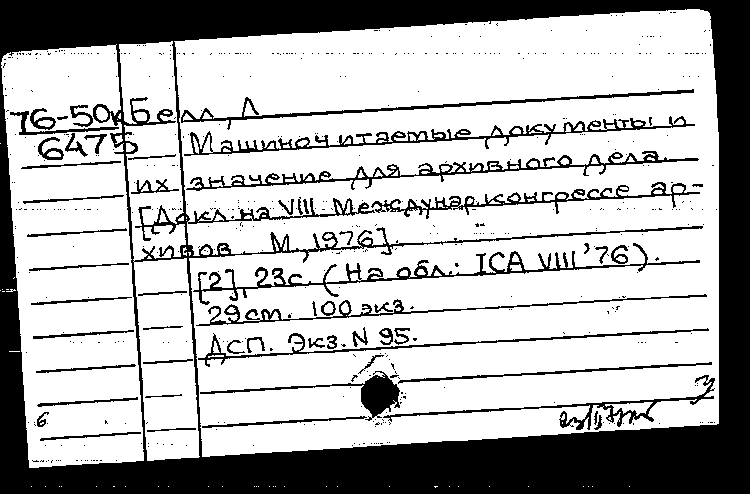 76-50к Белл, Л
6475 Машиночитаемые документы и
их значение для архивного дела.
[Докл. на VIII Междунар. конгрессе ар-
хивов. М., 1976].
[2], 23с. (На обл.: ICA VIII '76).
29 cm. 100 экз.
ДСП. Экз. N 95.
6